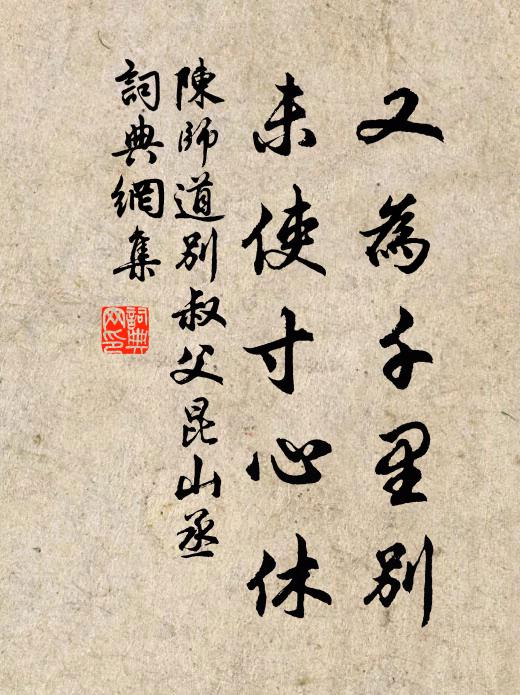 又為千里別
未使寸心休
陳師道別叔父昆山丞
詞典網集
詞典網印